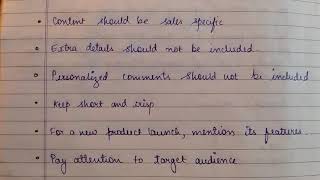 • Content should be sales specific
• Extra details should not be included.
• Personalized comments should not be included
• Keep short and crisp
• For a new product launch, mention its features.
• Pay attention to target audience